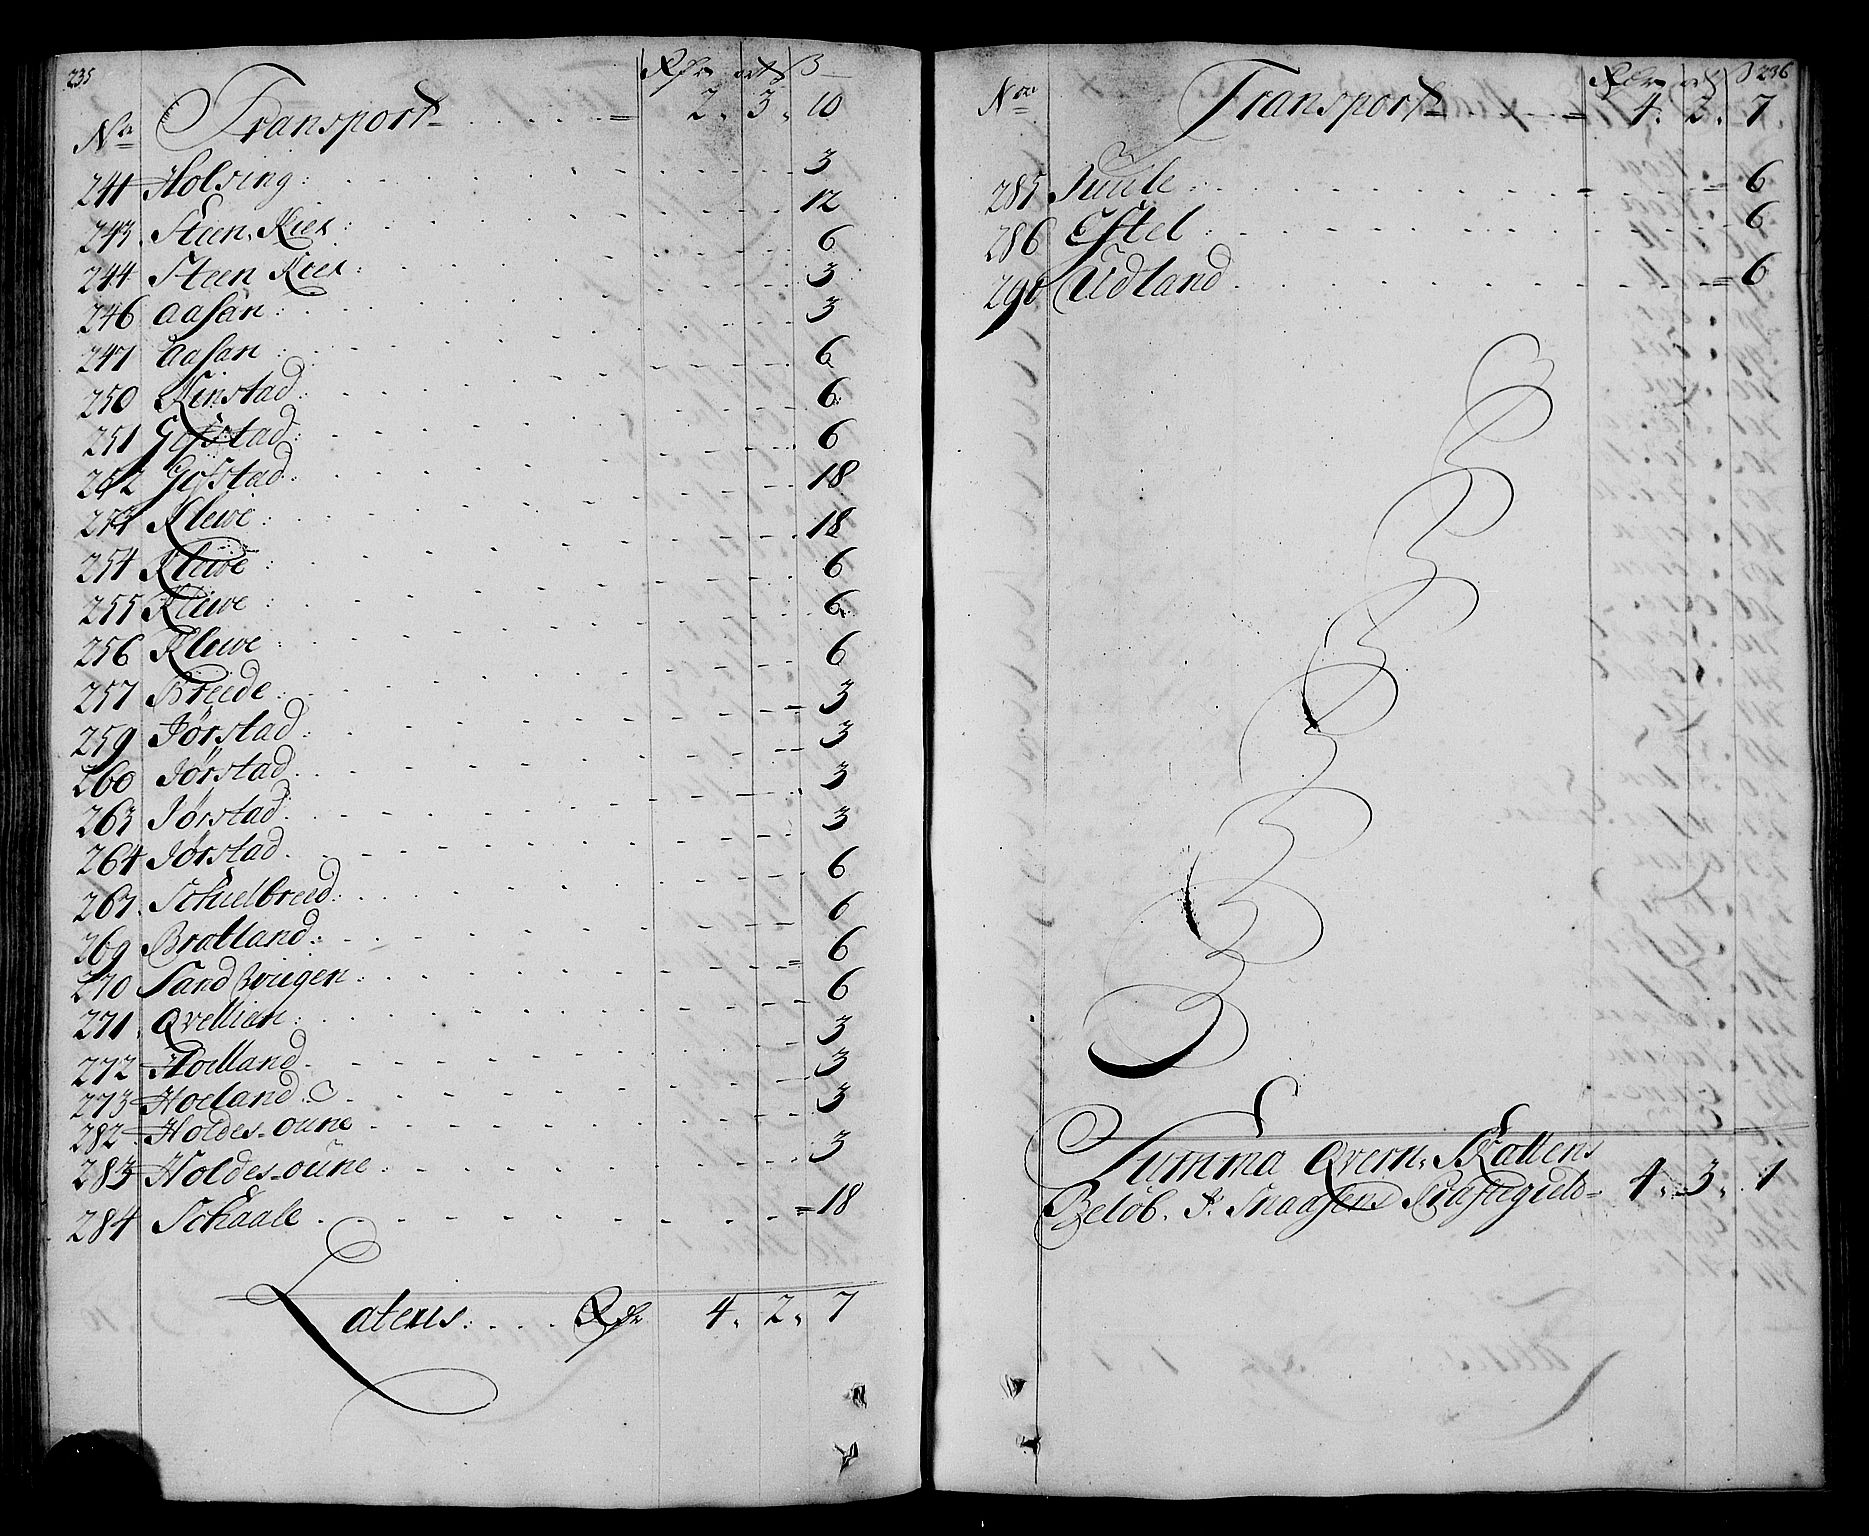 235
Rdr ort ß
No Transport 2. 3. 10
241 Holsing: 3
243 Steen Kier: 12
244 Steen Kier: 6
246 Aasan: 3
247 Aasan 3
250 Kinstad: 6
251 Gofstad: 6
252 Gofstad 6
Klewe: 18
254 Klewe 18
255 Klewe: 6
256 Klewe 6
257 Breede: 6
259 Jørstad: 3
260 Jørstad. 3
263 Jørstad: 3
264 Jørstad. 3
267 Schielbreed: 6
269 Bratland: 6
270 Sand 6
271 Qvellian: 6
272 Hoelland. 3
273 Hoeland 3
282 Holdes-oune 3
283 Holdes-oune: 3
284 Schaale 18
Lateris: Rdr 4. 2. 7
236
Rdr ort ß
No Transport 4. 2. 7
285 Juule 6
286 Estel 6
290 Udland 6
Summa Qvern Skattens
Beløb. Snaasens 4. 3. 1